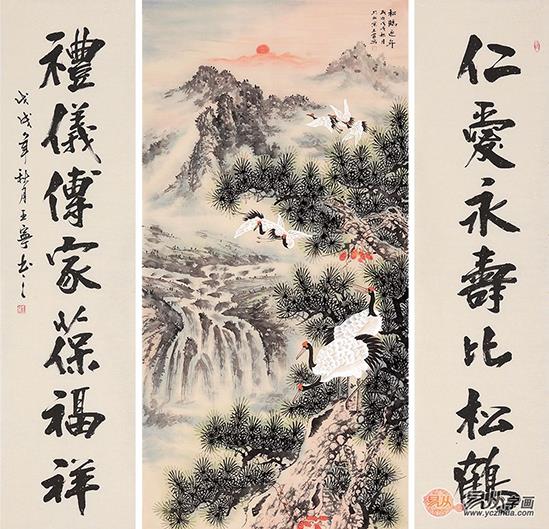 仁愛永壽比松鶴
松鶴延年
禮儀傳家葆福祥
戊戌年秋月王寧書之
易从字画
www.yczihua.com